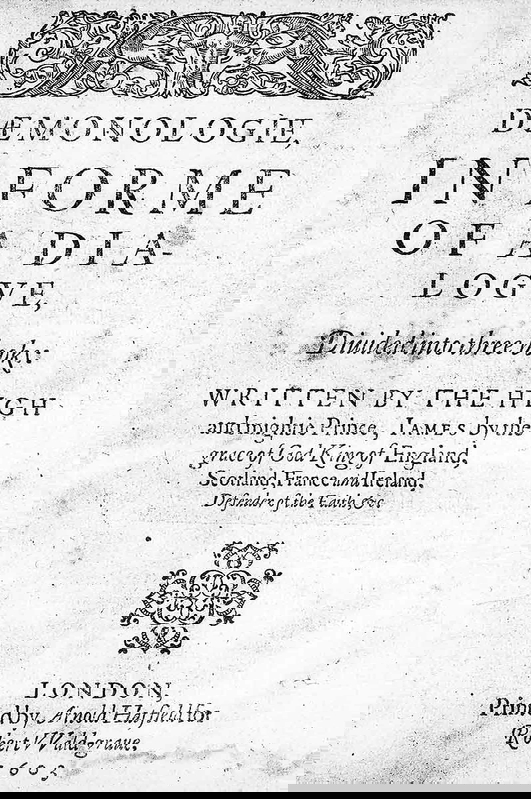 DÆMONOLOGIE,
IN FORME
OF A DIA-
LOGVE,
Diuided into three
WRITTEN BY THE HIGH
and mightie Prince, IAMES by the
grace of God King of England,
Scotland, France and Ireland,
Defender of the Faith, &c
LONDON,
by Arnold Hatfield for
Waldgraue